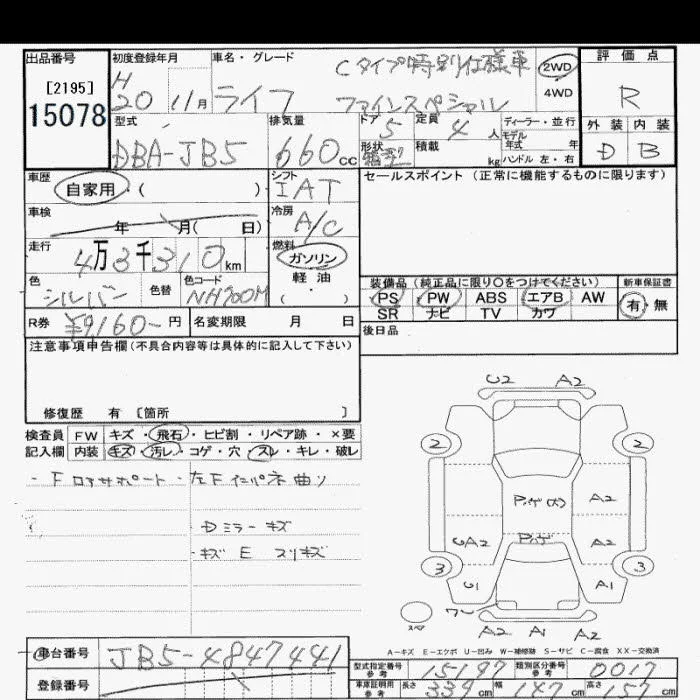 出品番号 初度登録年月 車名・グレード 評価点
[2195] H Cタイプ特別仕様車 2WD
15078 20 11月 ライフ ファインスペシャル 4WD R
型式 排気量 ドア 5 定員 4人 ディーラー・並行 外装 内装
DBA-JB5 660cc 形状 積載 kg モデル年式 年 ハンドル 左・右 D B
車歴 自家用 ( ) シフト IAT セールスポイント(正常に機能するものに限ります)
車検 年 月( 日) 冷房 A/C
走行 4万3千310km 燃料 ガソリン
軽油
( )
色 シルバー 色替 色コード NH700M
装備品(純正品に限り○をつけてください) 新車保証書
PS PW ABS エアB AW 有・無
SR ナビ TV カワ
R券 ¥9,160- 円 名変期限 月 日 後日品
注意事項申告欄(不具合内容等は具体的に記入して下さい)
修復歴 有 [箇所 ]
検査員 FW キズ・飛石・ヒビ割・リペア跡・×要
記入欄 内装 キズ・汚レ・コゲ・穴・スレ・キレ・破レ
・Fロアサポート・左Fインパネ曲り
Dミラー キズ
キズ E スリキズ
U2 A2
2 2
A2
UA2 A2
3 3
U1 A1
スペア
A2 A1 A2
A-キズ E-エクボ U-凹み W-補修跡 S-サビ C-腐食 XX-交換済
車台番号 JB5-4847441
登録番号
型式指定番号 参考 15197 類別区分番号 参考 0017
車庫証明用 参考 長さ 339cm 幅 147cm 高さ cm